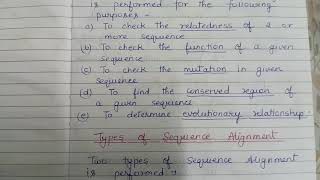 is performed for the following
purposes -
a) To check the relatedness of 2 or
more sequence
(b) To check the function of a given
sequence
(c) To check the mutation in given
sequence
(d) To find the conserved region of
a given sequence
(e) To determine evolutionary relationship.
Types of Sequence Alignment
Two types of Sequence Alignment
is performed :-